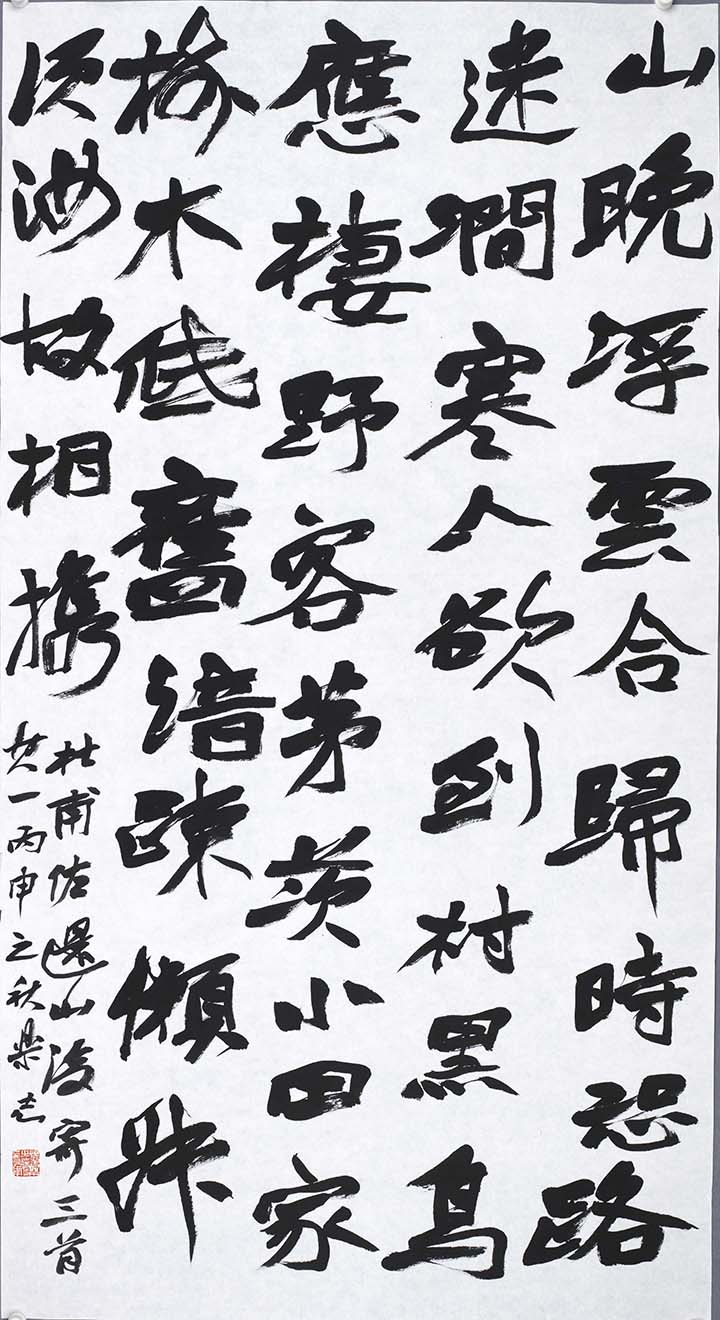 山晚浮雲合歸時恐路
迷澗寒人欲到村黑鳥
應棲野客茅茨小田家
樹木低舊諳疎懶叔
須汝故相携
杜甫佐還山後寄三首
其一丙申之秋樂